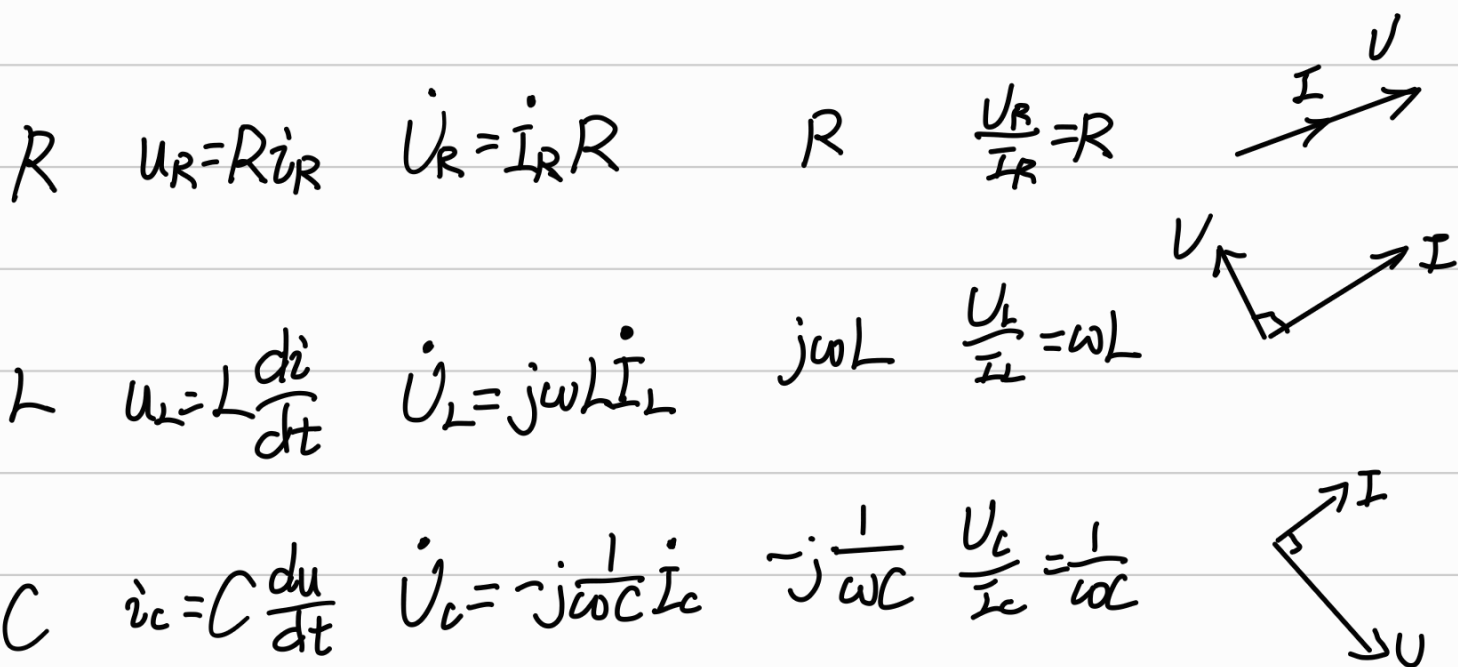 R u_R=Ri_R U̇_R=İ_R R R U_R/I_R=R I U
L u_L=L di/dt U̇_L=jωLİ_L jωL U_L/I_L=ωL U I
C i_c=C du/dt U̇_c=-j 1/ωC İ_c -j 1/ωC U_c/I_c=1/ωC I U